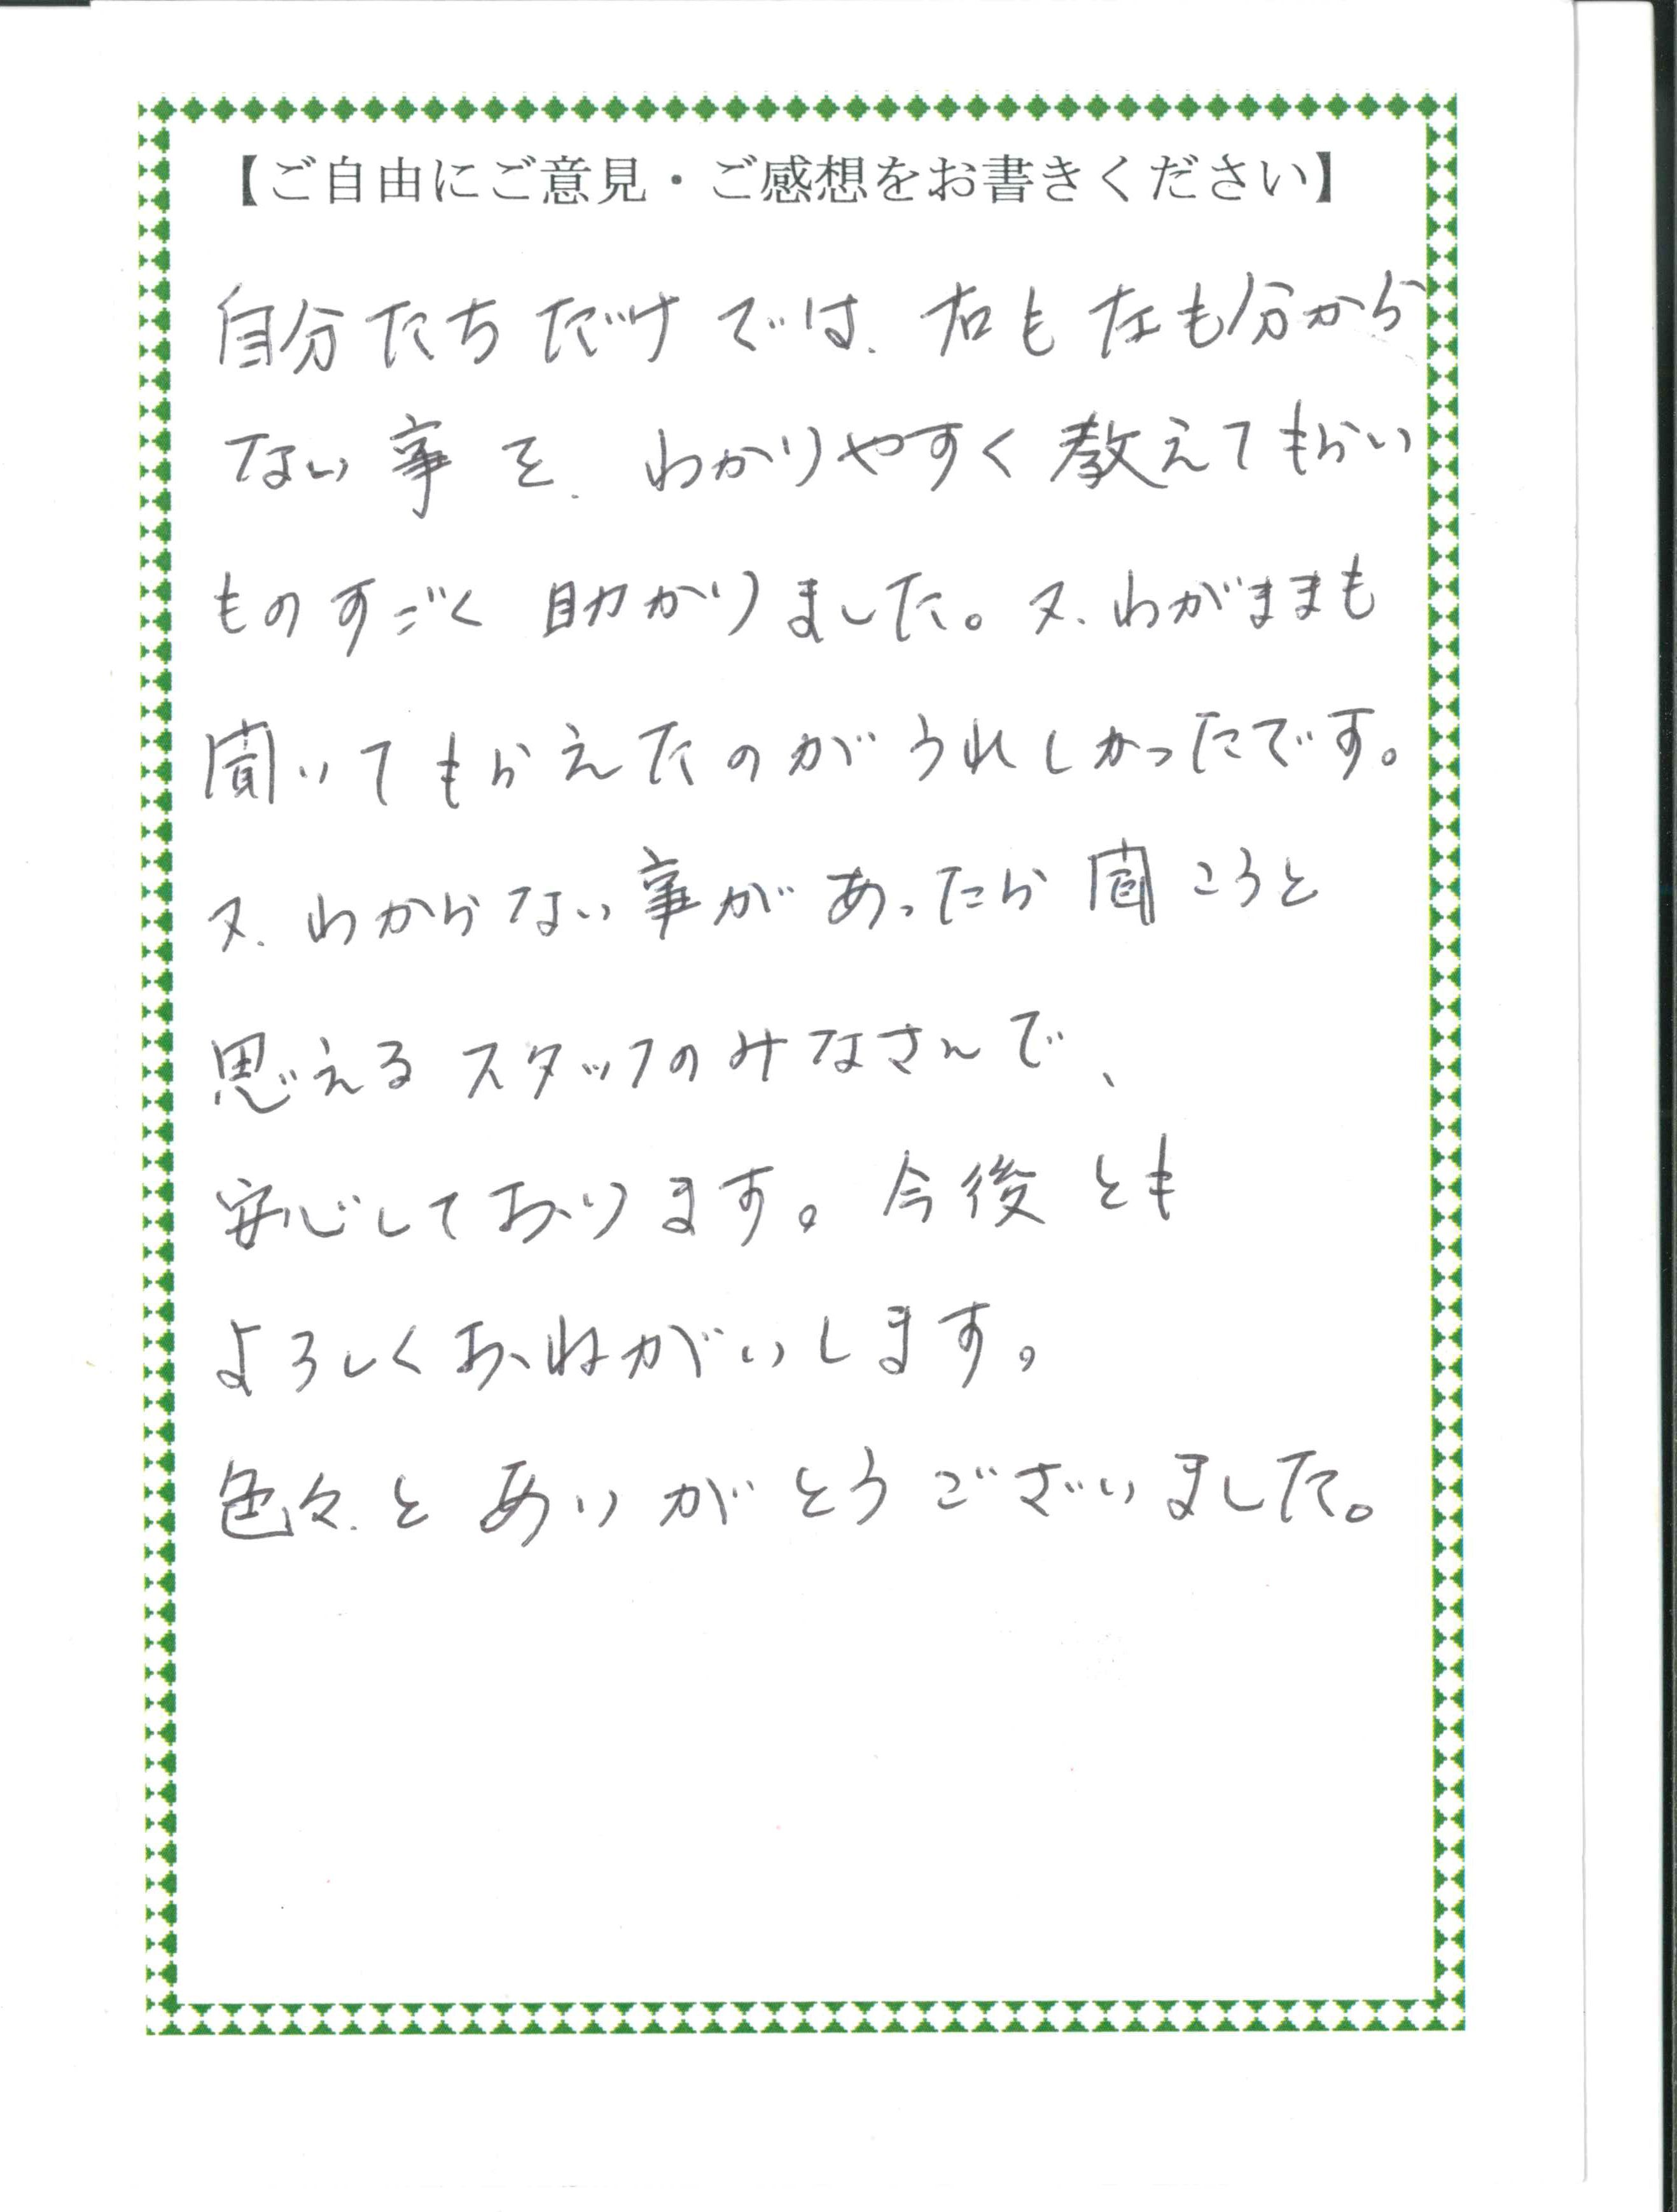 【ご自由にご意見・ご感想をお書きください】
自分たちだけでは、右も左も分から
ない事を、わかりやすく教えてもらい
ものすごく助かりました。又、わがままも
聞いてもらえたのがうれしかったです。
又、わからない事があったら聞こうと
思えるスタッフのみなさんで、
安心しております。今後とも
よろしくおねがいします。
色々とありがとうございました。